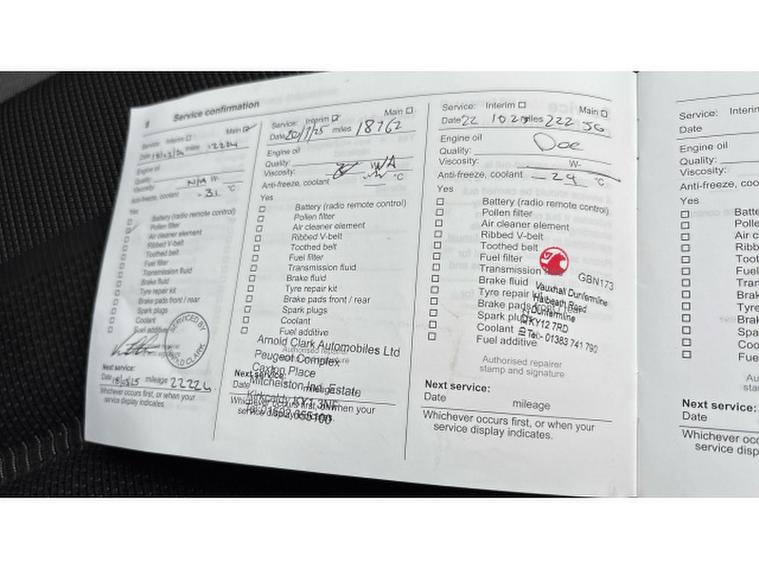 8 Service confirmation
Service: Interim ☐ Main ☑
Date miles 12204
Engine oil
Quality:
Viscosity: N/A W-
Anti-freeze, coolant -31 °C
Yes
☐ Battery (radio remote control)
Pollen filter
☐ Air cleaner element
☐ Ribbed V-belt
☐ Toothed belt
☐ Fuel filter
☐ Transmission fluid
☐ Brake fluid
☐ Tyre repair kit
☐ Brake pads front / rear
☐ Spark plugs
☐ Coolant
☐ Fuel additive
SERVICED BY
ARNOLD CLARK
Next service:
Date mileage 22224
Whichever occurs first, or when your
service display indicates.
Service: Interim ☑ Main ☐
Date 20/1/25 miles 18762
Engine oil
Quality:
Viscosity: N/A W-
Anti-freeze, coolant °C
Yes
☐ Battery (radio remote control)
☐ Pollen filter
☐ Air cleaner element
☐ Ribbed V-belt
☐ Toothed belt
☐ Fuel filter
☐ Transmission fluid
☐ Brake fluid
☐ Tyre repair kit
☐ Brake pads front / rear
☐ Spark plugs
☐ Coolant
☐ Fuel additive
Arnold Clark Automobiles Ltd
Peugeot Complex
Caxton Place
Mitchelston Ind. Estate
Kirkcaldy KY1 3NF
Tel: 01592 655100
Next service:
Date
Whichever occurs first, or when your
service display indicates.
Service: Interim ☐ Main ☐
Date 22 10 25 miles 222 56
Engine oil
Quality:
Viscosity: W-
Anti-freeze, coolant -29 °C
Yes
☐ Battery (radio remote control)
☐ Pollen filter
☐ Air cleaner element
☐ Ribbed V-belt
☐ Toothed belt
☐ Fuel filter
☐ Transmission fluid
☐ Brake fluid
☐ Tyre repair kit
☐ Brake pads front / rear
☐ Spark plugs
☐ Coolant
☐ Fuel additive
GBN173
Vauxhall Dunfermline
Halbeath Road
Dunfermline
KY12 7RD
Tel:- 01383 741 790
Authorised repairer
stamp and signature
Next service:
Date mileage
Whichever occurs first, or when your
service display indicates.
Service: Interim
Date
Engine oil
Quality:
Viscosity:
Anti-freeze, coo
Yes
☐ Batte
☐ Polle
☐ Air c
☐ Ribb
☐ Toot
☐ Fuel
☐ Tran
☐ Brak
☐ Tyre
☐ Brak
☐ Spar
☐ Coo
☐ Fue
Au
sta
Next service:
Date
Whichever occ
service disp